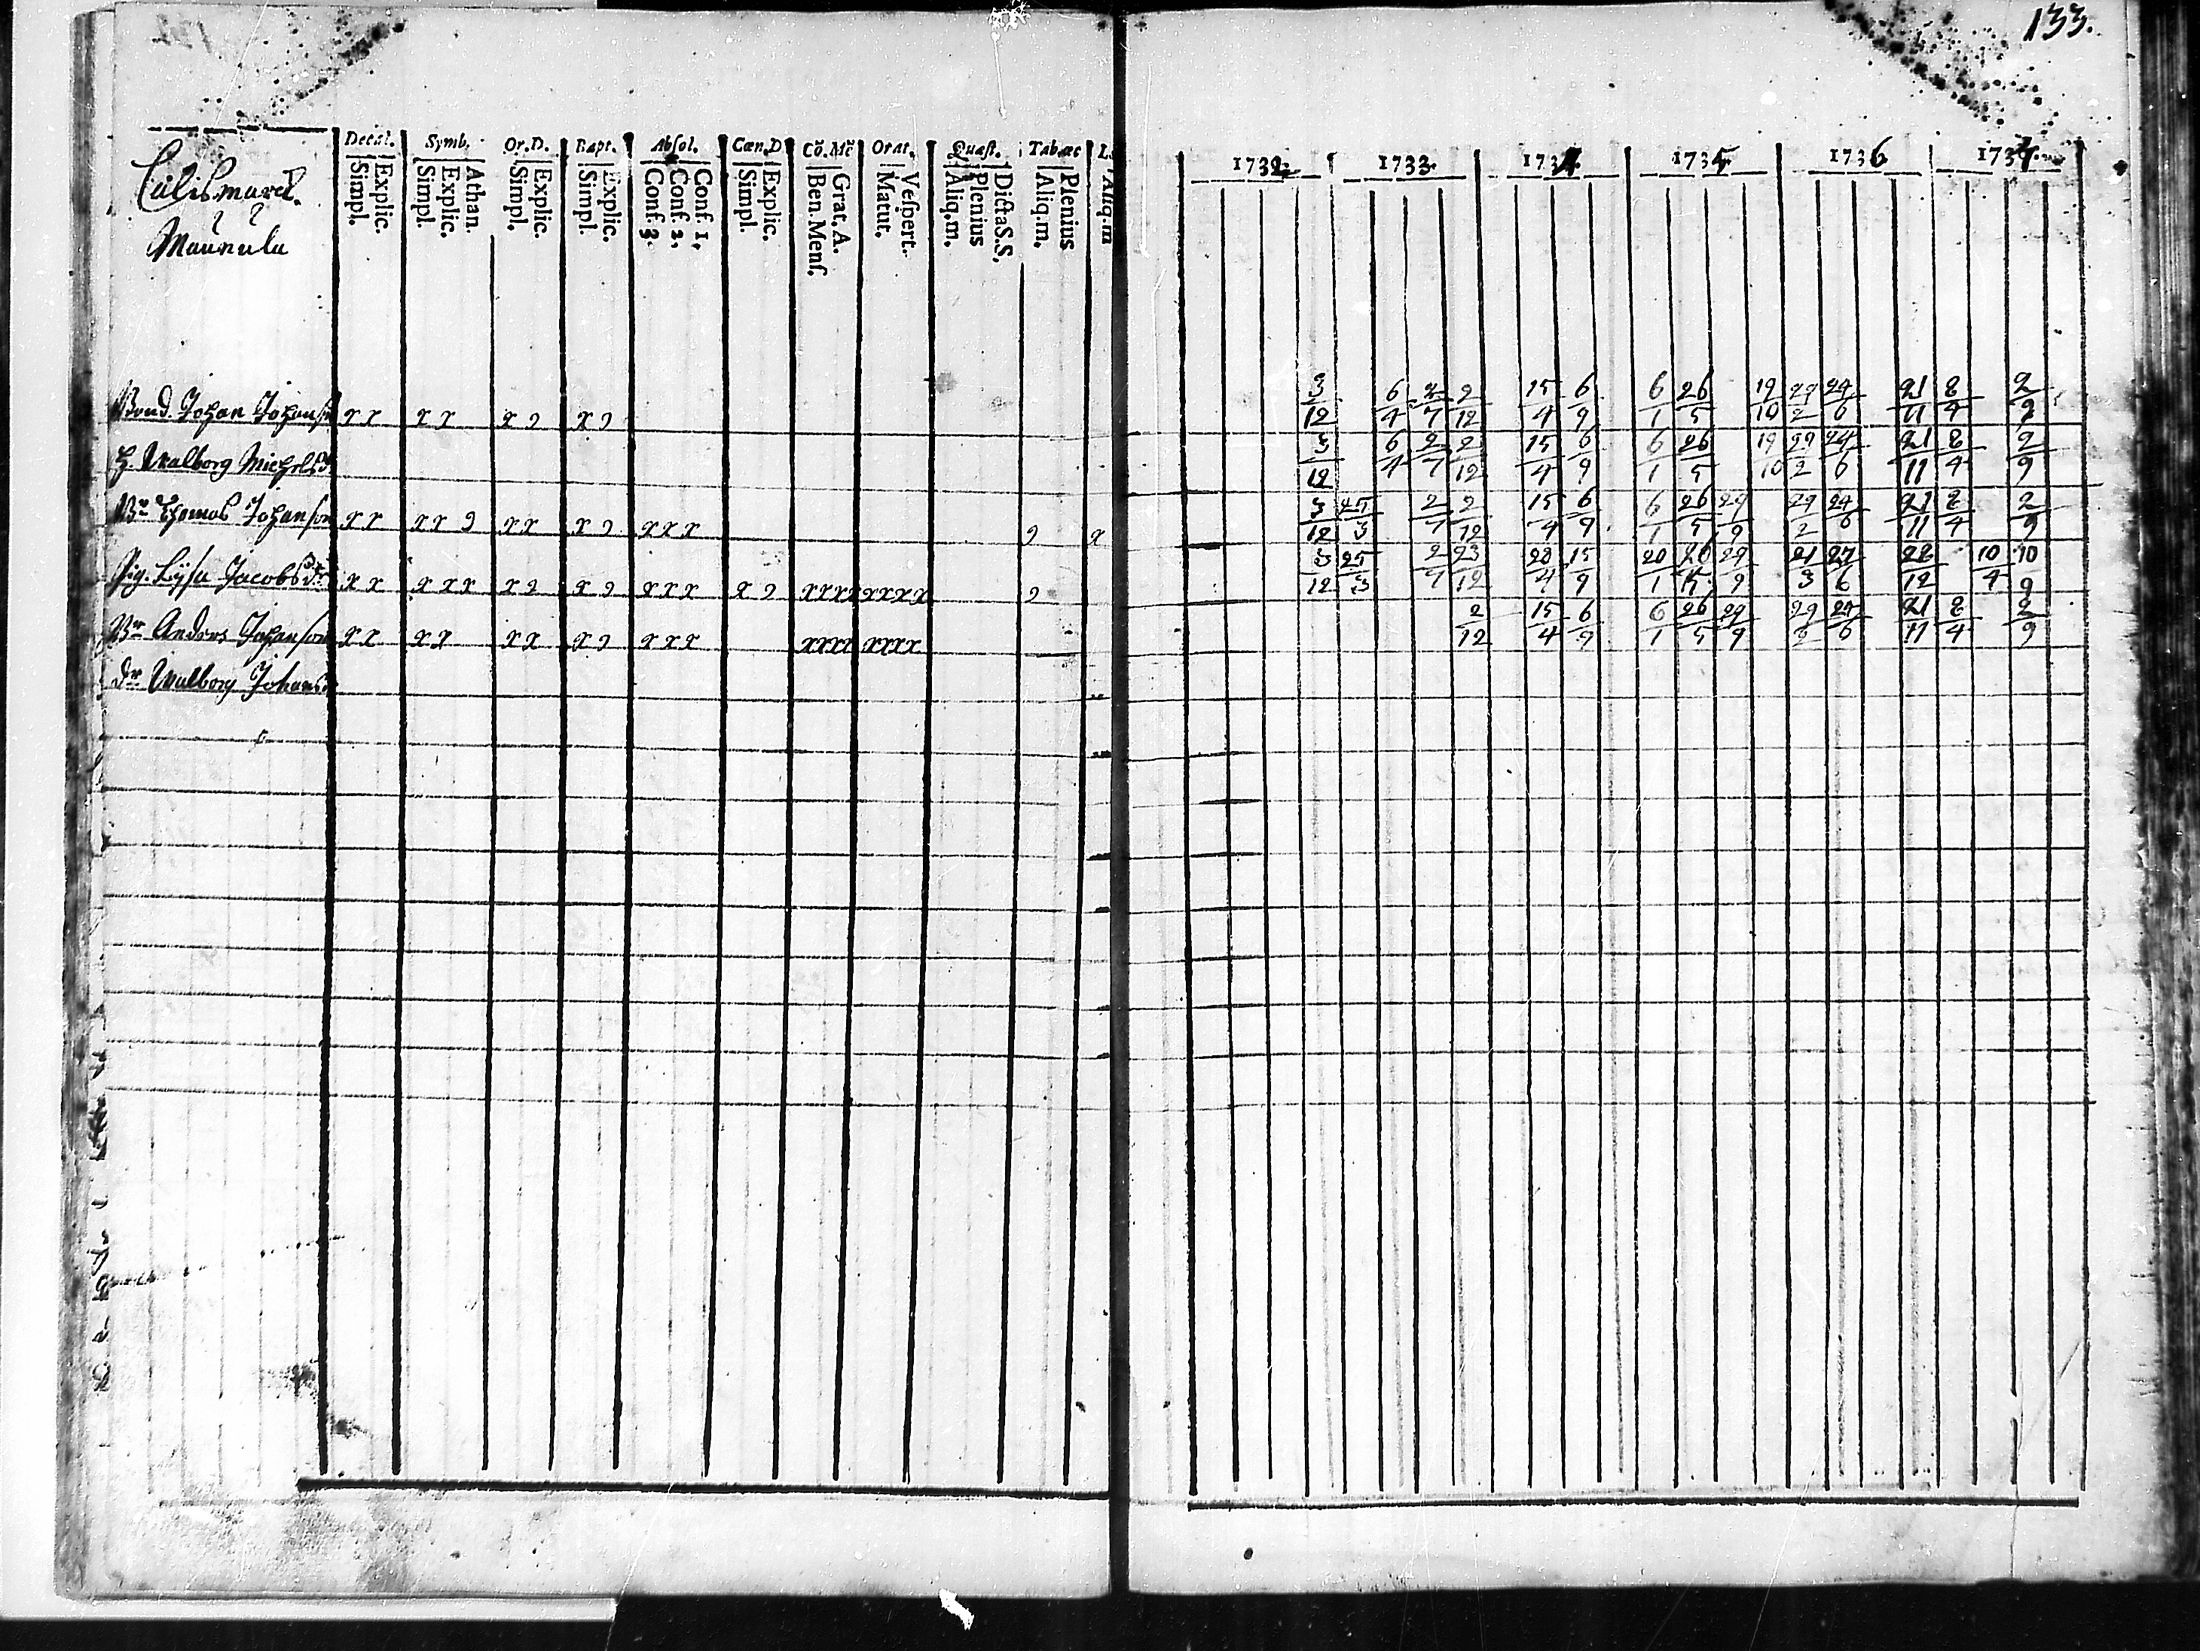 133.
Decal. Symb. Or.D. Bapt. Absol. Cœn.D Cõ.Mẽ Orat. Quæst. Tabæc
Simpl. Explic. Simpl. Explic. Athan. Simpl. Explic. Simpl. Explic. Conf. 3. Conf. 2, Conf. 1, Simpl. Explic. Ben. Mens. Grat. A. Matut. Vespert. Aliq.m. Plenius Dicta S.S. Aliq.m. Plenius Aliq.m
1732 1733 1734 1735 1736 1737
Maunula
Bond. Johan Johanss xx xx x9 x9 3/12 6/4 2/7 2/12 15/4 6/9 6/1 26/5 19/10 29/2 24/6 21/11 8/4 2/9
H. Walborg Michelsd 3/12 6/4 2/7 2/12 15/4 6/9 6/1 26/5 19/10 29/2 24/6 21/11 8/4 2/9
Br Thomas Johansson xx xx9 xx x9 xxx 9 x 3/12 25/3 2/7 2/12 15/4 6/9 6/1 26/5 29/9 29/2 24/6 21/11 8/4 2/9
Pig. Lysa Jacobsdr xx xxx x9 x9 xxx x9 xxxx xxxx 9 3/12 25/3 2/7 23/12 15/9 20/1 29/9 21/3 27/6 10/4 10/9
Br Anders Johansson xx xx xx x9 xxx xxxx xxxx 2/12 15/4 6/9 6/1 26/5 29/9 29/2 24/6 21/11 8/4 2/9
dr Walborg Johans